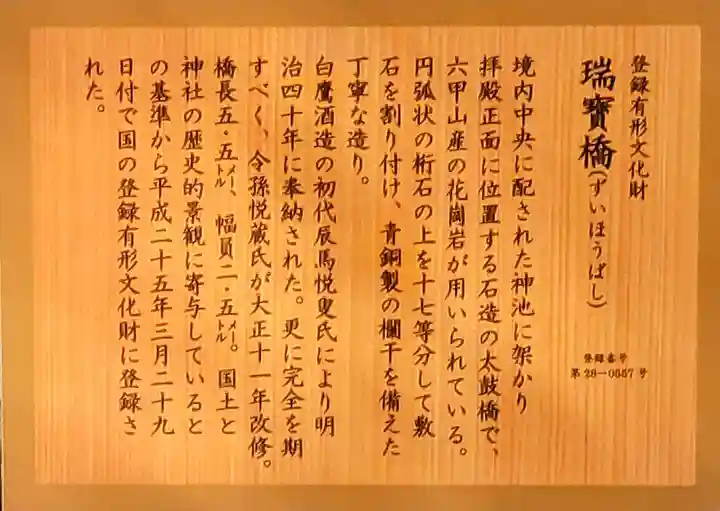 登録有形文化財
瑞寳橋(ずいほうばし)
登録番号
第28-0557号
境内中央に配された神池に架かり
拝殿正面に位置する石造の太鼓橋で、
六甲山産の花崗岩が用いられている。
円弧状の桁石の上を十七等分して敷
石を割り付け、青銅製の欄干を備えた
丁寧な造り。
白鷹酒造の初代辰馬悦叟氏により明
治四十年に奉納された。更に完全を期
すべく、令孫悦蔵氏が大正十一年改修。
橋長五・五㍍、幅員二・五㍍。国土と
神社の歴史的景観に寄与していると
の基準から平成二十五年三月二十九
日付で国の登録有形文化財に登録さ
れた。